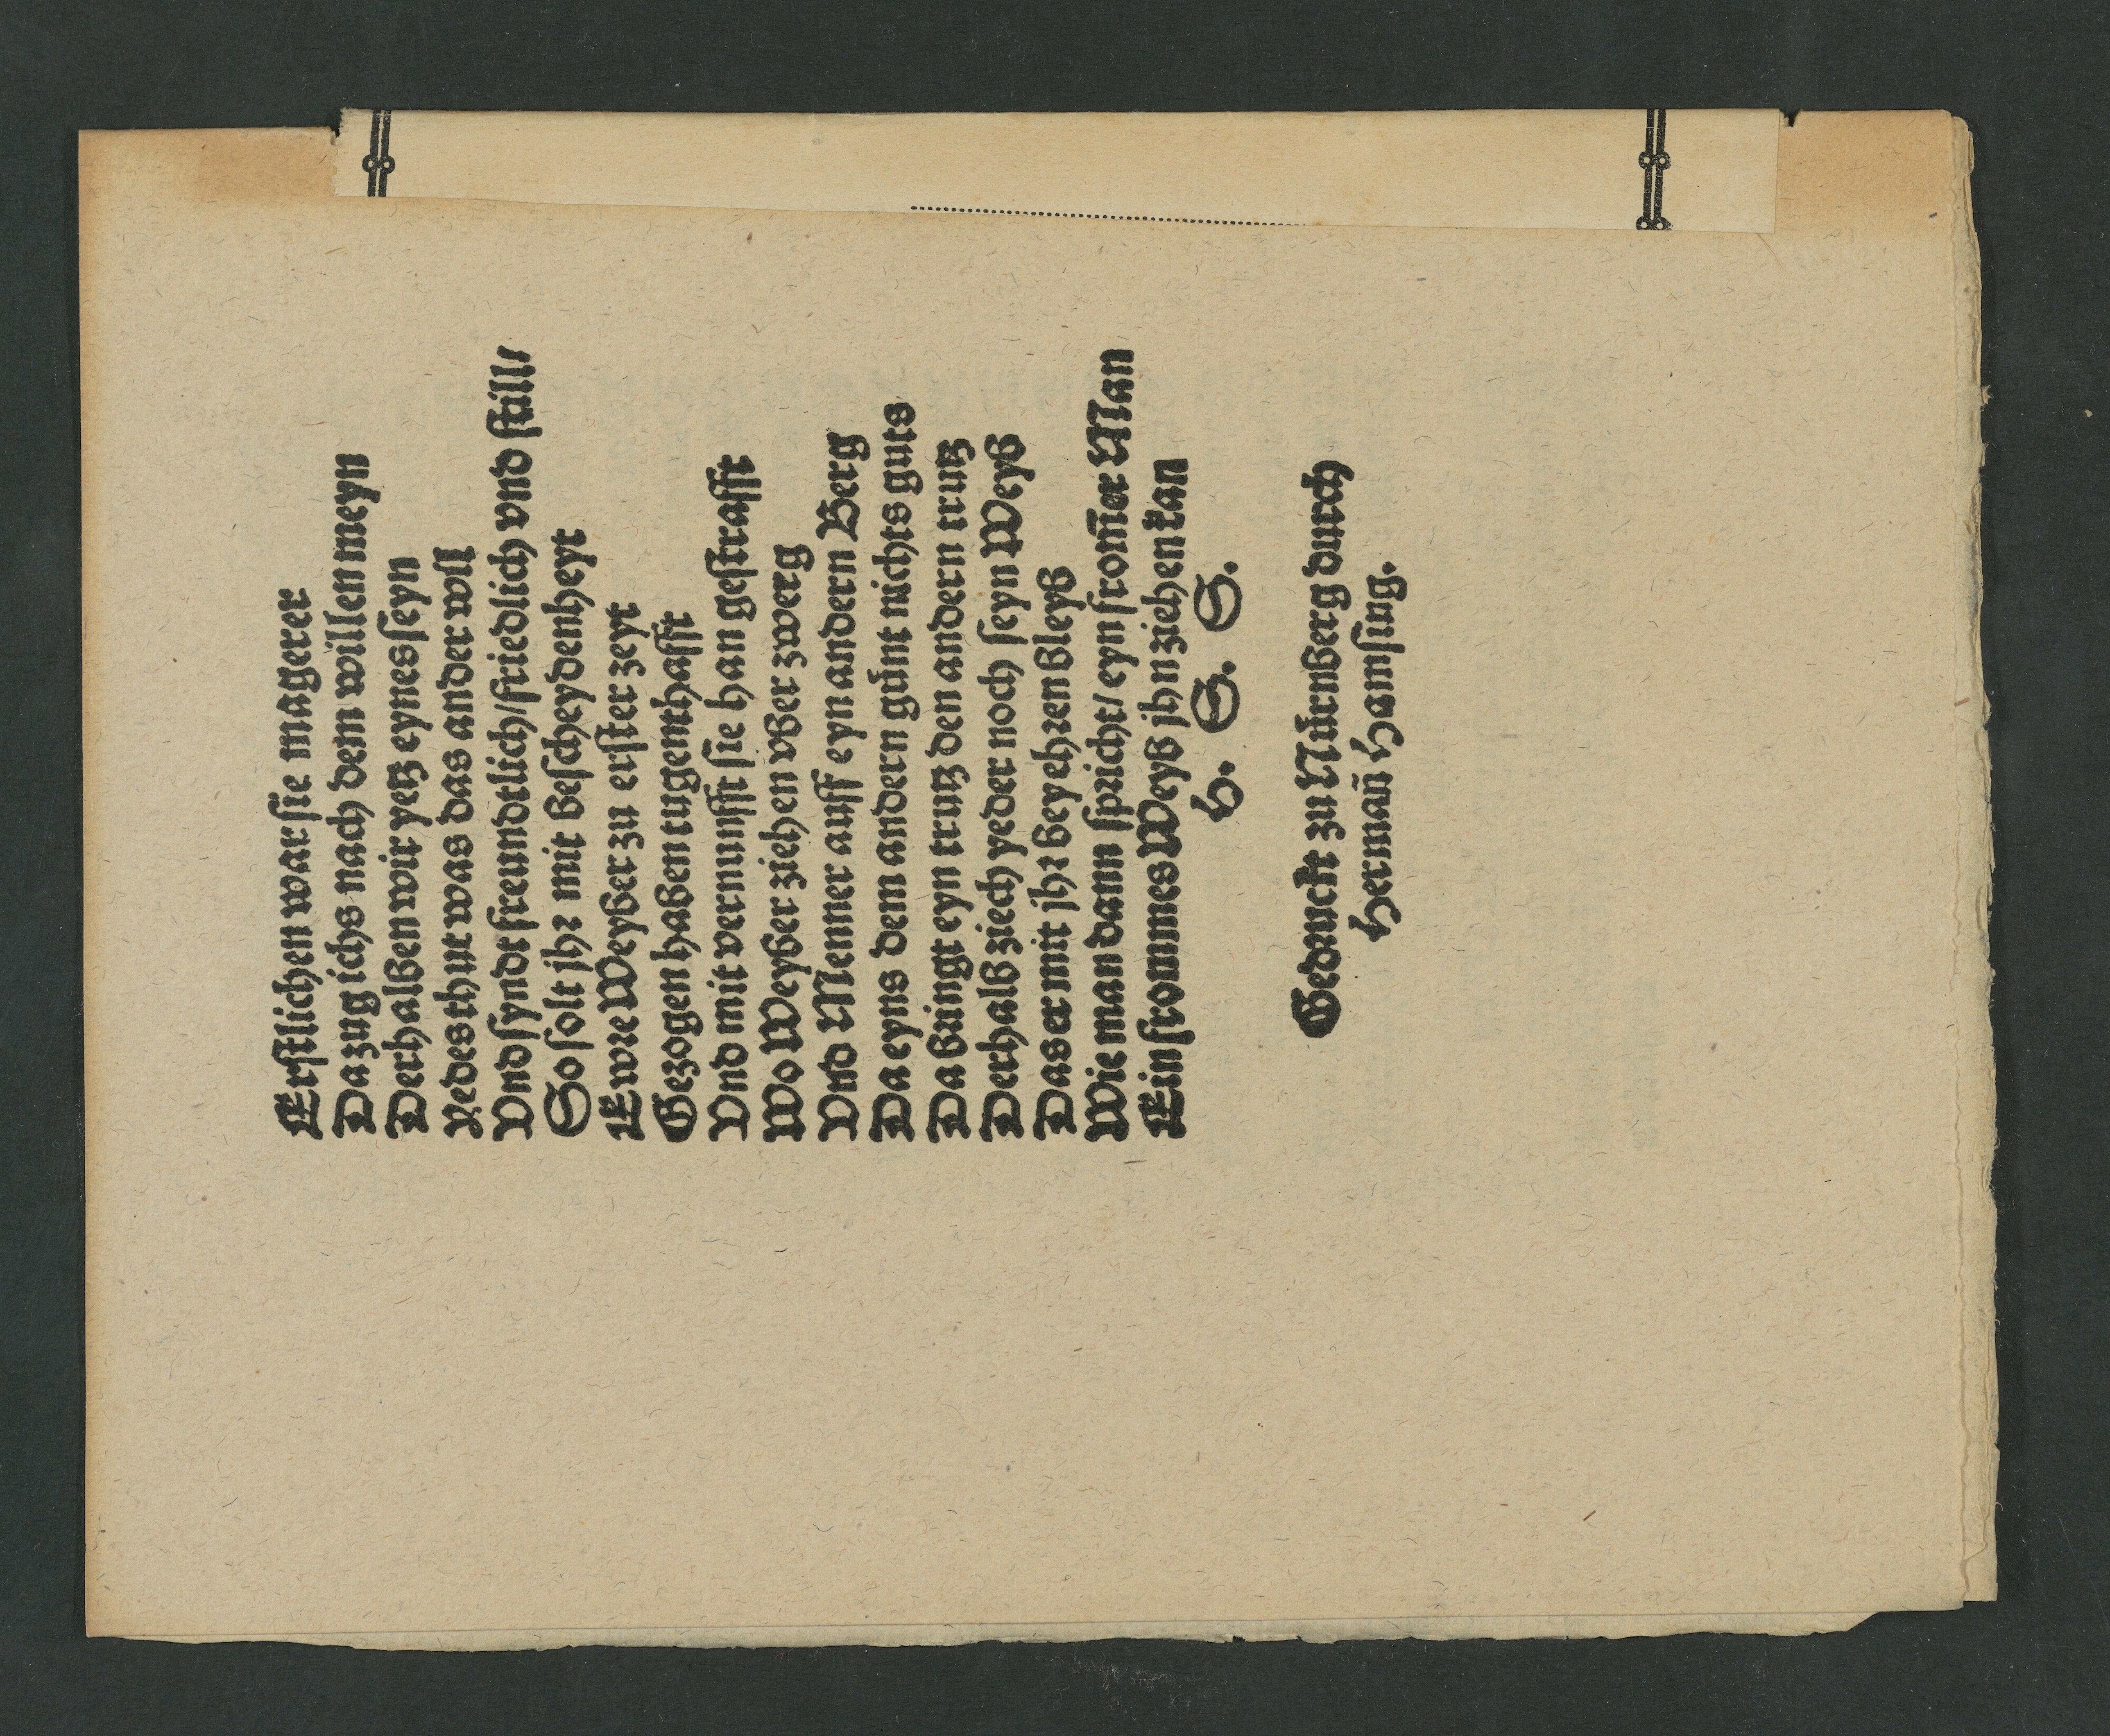 Erstlichen war sie magerer
Da zug ichs nach dem willen meyn
Derhalben wir yetz eynes seyn
Redes thut was das ander wil
Vnd syndt freundtlich/ friedlich vnd still/
So solt jhr mit bescheydenheyt
Ewre Weyber zu erster zeyt
Gezogen haben tugenthafft
Vnd mit vernunfft sie han gestrafft
Wo Weyber ziehen vber zwerg
Vnd Menner auff eyn andern Berg
Da eyns dem andern günt nichts guts
Da bringt eyn trutz den andern trutz
Derhalb ziech yeder noch seyn Weyb
Das er mit jhr bey ehren bleyb
Wie man dann spricht/ eyn from̃er Man
Ein frommes Weyb jhn ziehen kan
H. S. S.
Gedruckt zu Nürnberg durch
Herman̄ Hamsing.